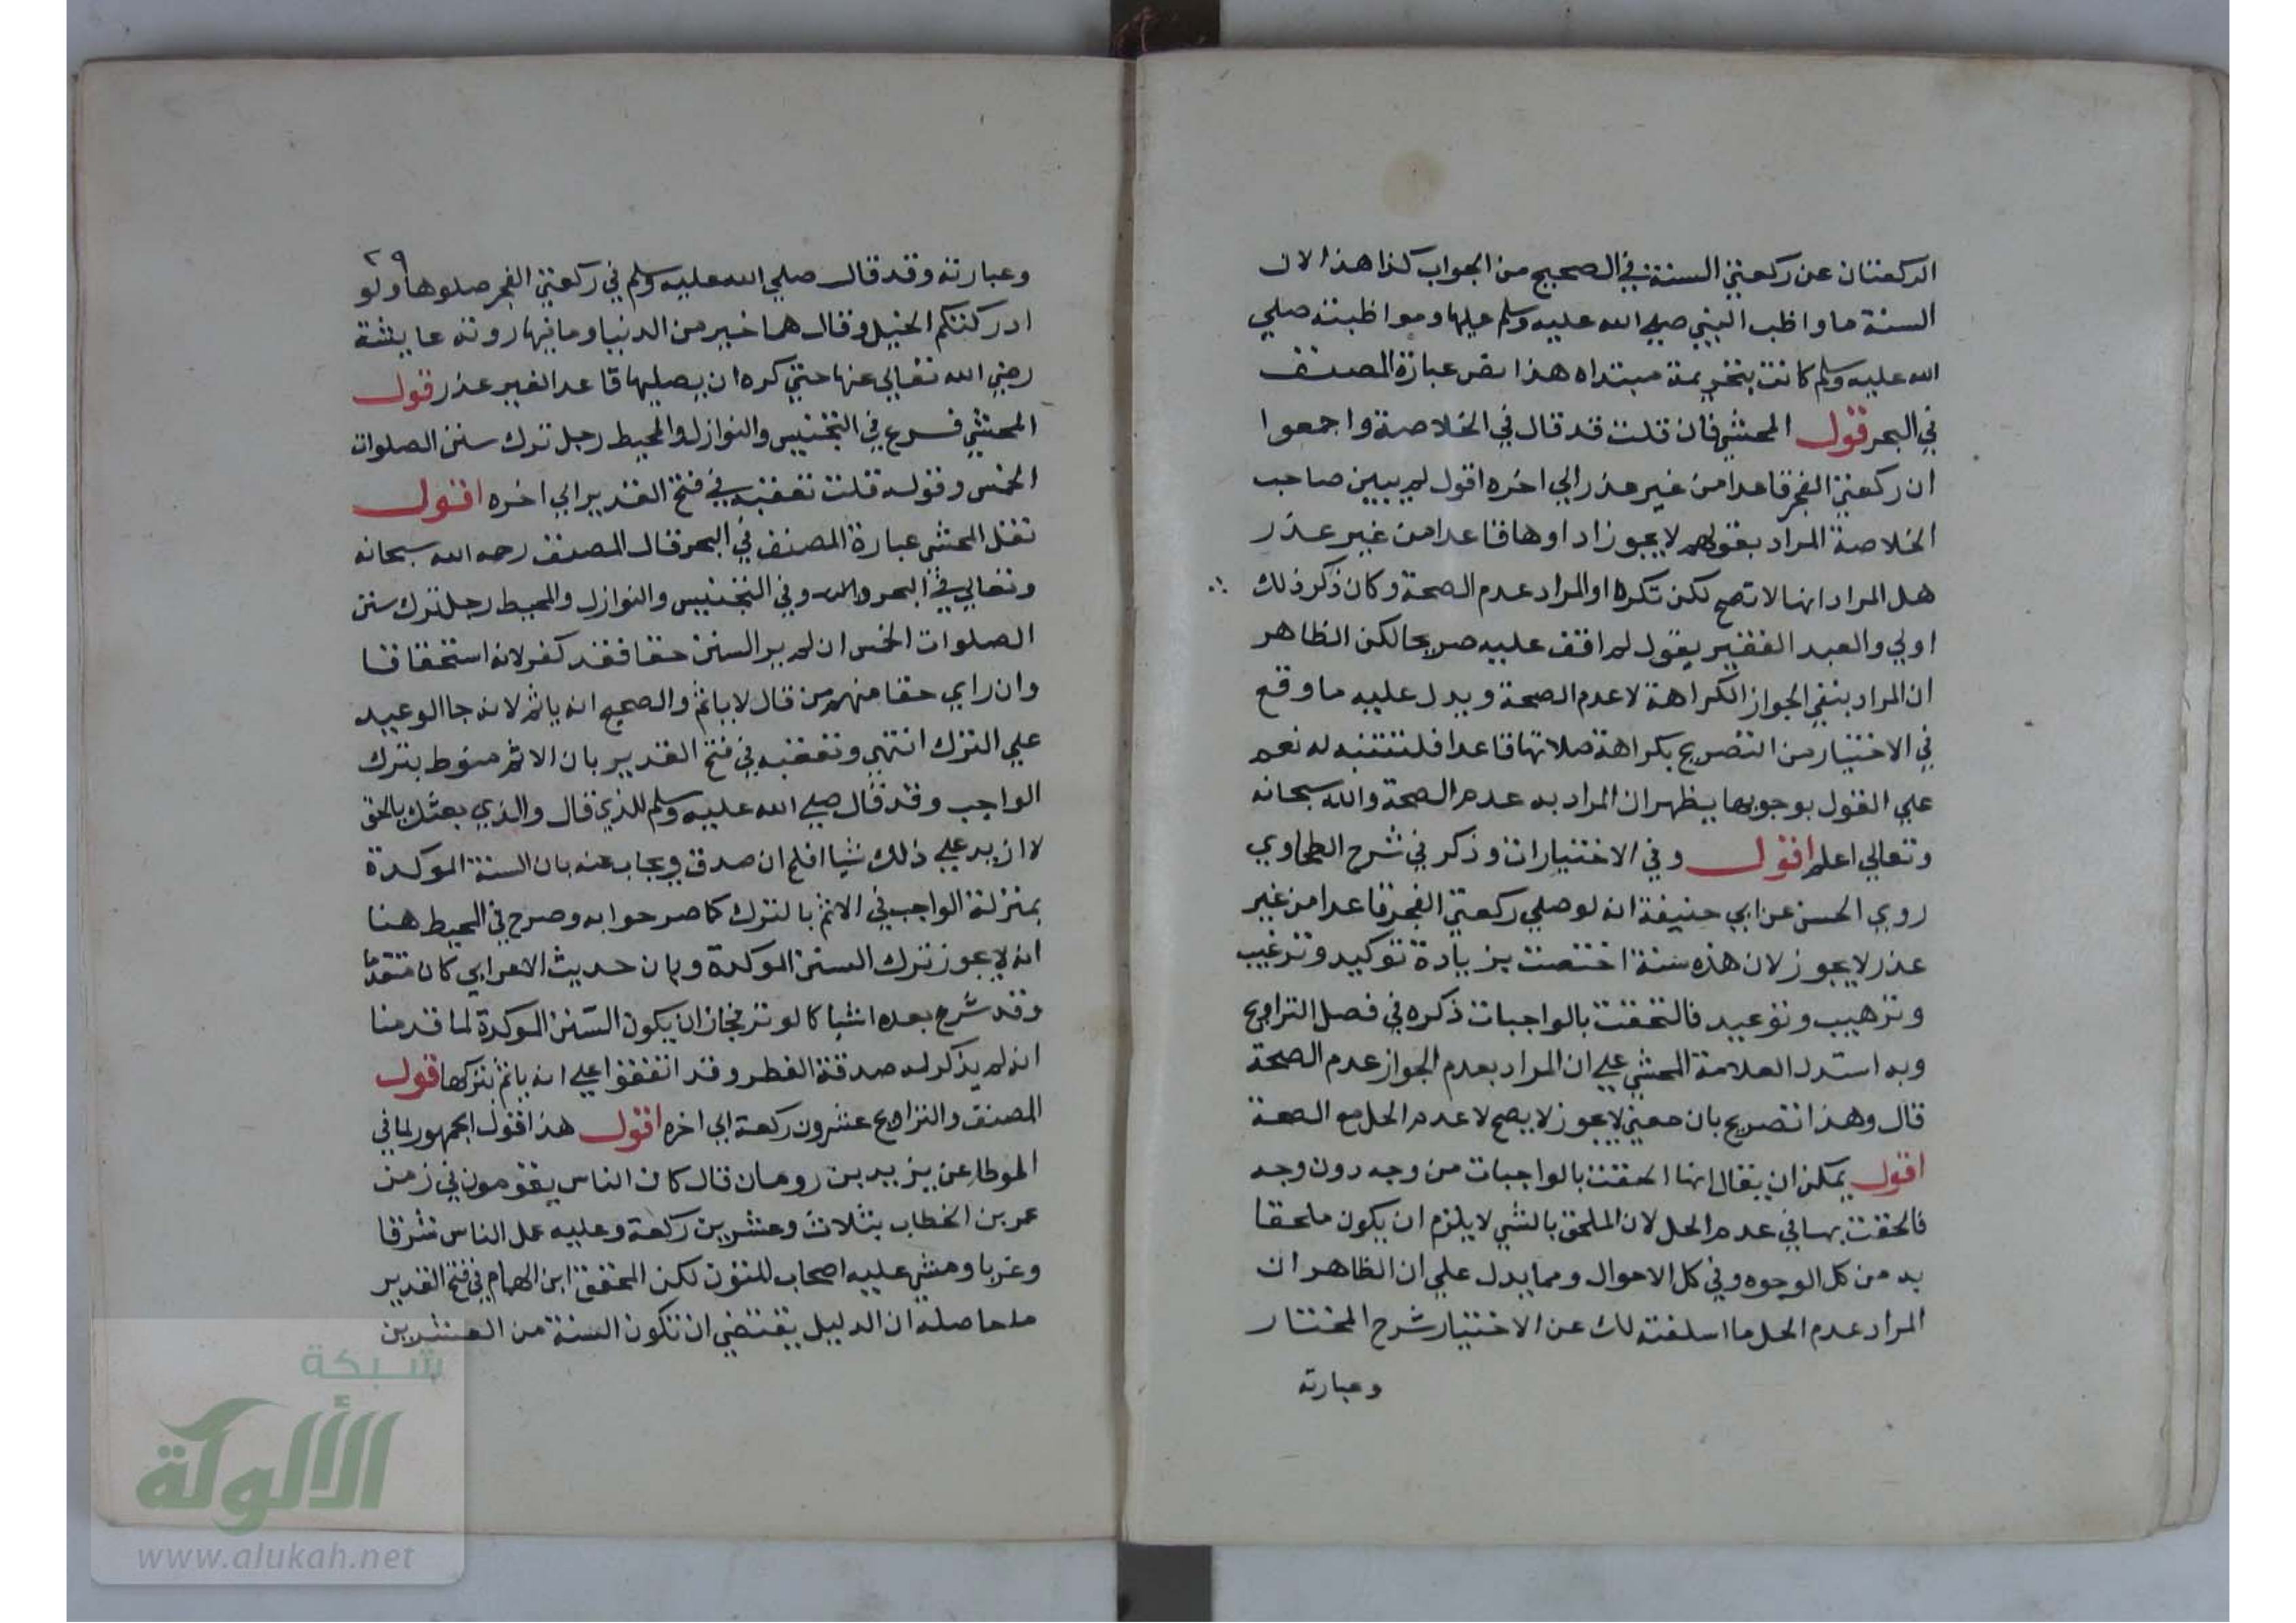 الركعتان عن ركعتي السنة في الصحيح من الجواب كذا هذا لان
السنة ما واظب النبي صلى الله عليه وسلم عليها ومواظبته صلي
الله عليه وسلم كانت بتحريمة مبتداه هذا نص عبارة المصنف
في البحر قول المحشي فان قلت قد قال في الخلاصة واجمعوا
ان ركعتي الفجر قاعدا من غير عذر الي اخره اقول لم يبين صاحب
الخلاصة المراد بقولهم لا يجوز اداوها قاعدا من غير عذر
هل المراد انها لا تصح لكن تكره او المراد عدم الصحة وكان ذكر ذلك
اولي والعبد الفقير يقول لم اقف عليه صريحا لكن الظاهر
ان المراد بنفي الجواز الكراهة لا عدم الصحة ويدل عليه ما وقع
في الاختيار من التصريح بكراهة صلاتها قاعدا فلتتنبه له نعم
علي القول بوجوبها يظهر ان المراد به عدم الصحة والله سبحانه
وتعالي اعلم اقول وفي الاختيارات وذكر في شرح الطحاوي
روي الحسن عن ابي حنيفة انه لو صلي ركعتي الفجر قاعدا من غير
عذر لا يجوز لان هذه سنة اختصت بزيادة توكيد وترغيب
وترهيب وتوعيد فالتحقت بالواجبات ذكره في فصل التراويح
وبه استدل العلامة المحشي علي ان المراد بعدم الجواز عدم الصحة
قال وهذا تصريح بان معني لا يجوز لا يصح لا عدم الحل مع الصحة
اقول يمكن ان يقال انها الحقت بالواجبات من وجه دون وجه
فالحقت بها في عدم الحل لان الملحق بالشي لا يلزم ان يكون ملحقا
به من كل الوجوه وفي كل الاحوال ومما يدل علي ان الظاهر ان
المراد عدم الحل ما اسلفته لك عن الاختيار شرح المختار
وعبارته
٢٩
وعبارته وقد قال صلي الله عليه وسلم في ركعتي الفجر صلوها ولو
ادركتكم الخيل وقال هما خير من الدنيا وما فيها روته عايشة
رضي الله تعالي عنها حتي كره ان يصليها قاعدا لغير عذر قول
المحشي فرع في التجنيس والنوازل والمحيط رجل ترك سنن الصلوات
الخمس وقوله قلت تعقبه في فتح القدير الي اخره اقول
نقل المحشي عبارة المصنف في البحر قال المصنف رحمه الله سبحانه
وتعالي في البحر وفي التجنيس والنوازل والمحيط رجل ترك سنن
الصلوات الخمس ان لم ير السنن حقا فقد كفر لانه استخفافا
وان راي حقا منهم من قال لا ياثم والصحيح انه ياثم لانه جا الوعيد
علي الترك انتهي وتعقبه في فتح القدير بان الاثم منوط بترك
الواجب وقد قال صلي الله عليه وسلم للذي قال والذي بعثك بالحق
لا ازيد علي ذلك شيا افلح ان صدق ويجاب عنه بان السنة الموكدة
بمنزلة الواجب في الاثم بالترك كما صرحوا به وصرح في المحيط هنا
انه لا يجوز ترك السنن الموكدة وبان حديث الاعرابي كان متقدما
وقد شرع بعده اشيا كالوتر فجاز ان يكون السنن الموكدة لما قدمنا
انه لم يذكر له صدقة الفطر وقد اتفقوا علي انه ياثم بتركها قول
المصنف والتراويح عشرون ركعة الي اخره اقول هذا قول الجمهور لما في
الموطا عن يزيد بن رومان قال كان الناس يقومون في زمن
عمر بن الخطاب بثلاث وعشرين ركعة وعليه عمل الناس شرقا
وغربا ومشي عليه اصحاب المتون لكن المحقق ابن الهمام في فتح القدير
ما حاصله ان الدليل يقتضي ان تكون السنة من العشرين
شبكة
الألوكة
www.alukah.net